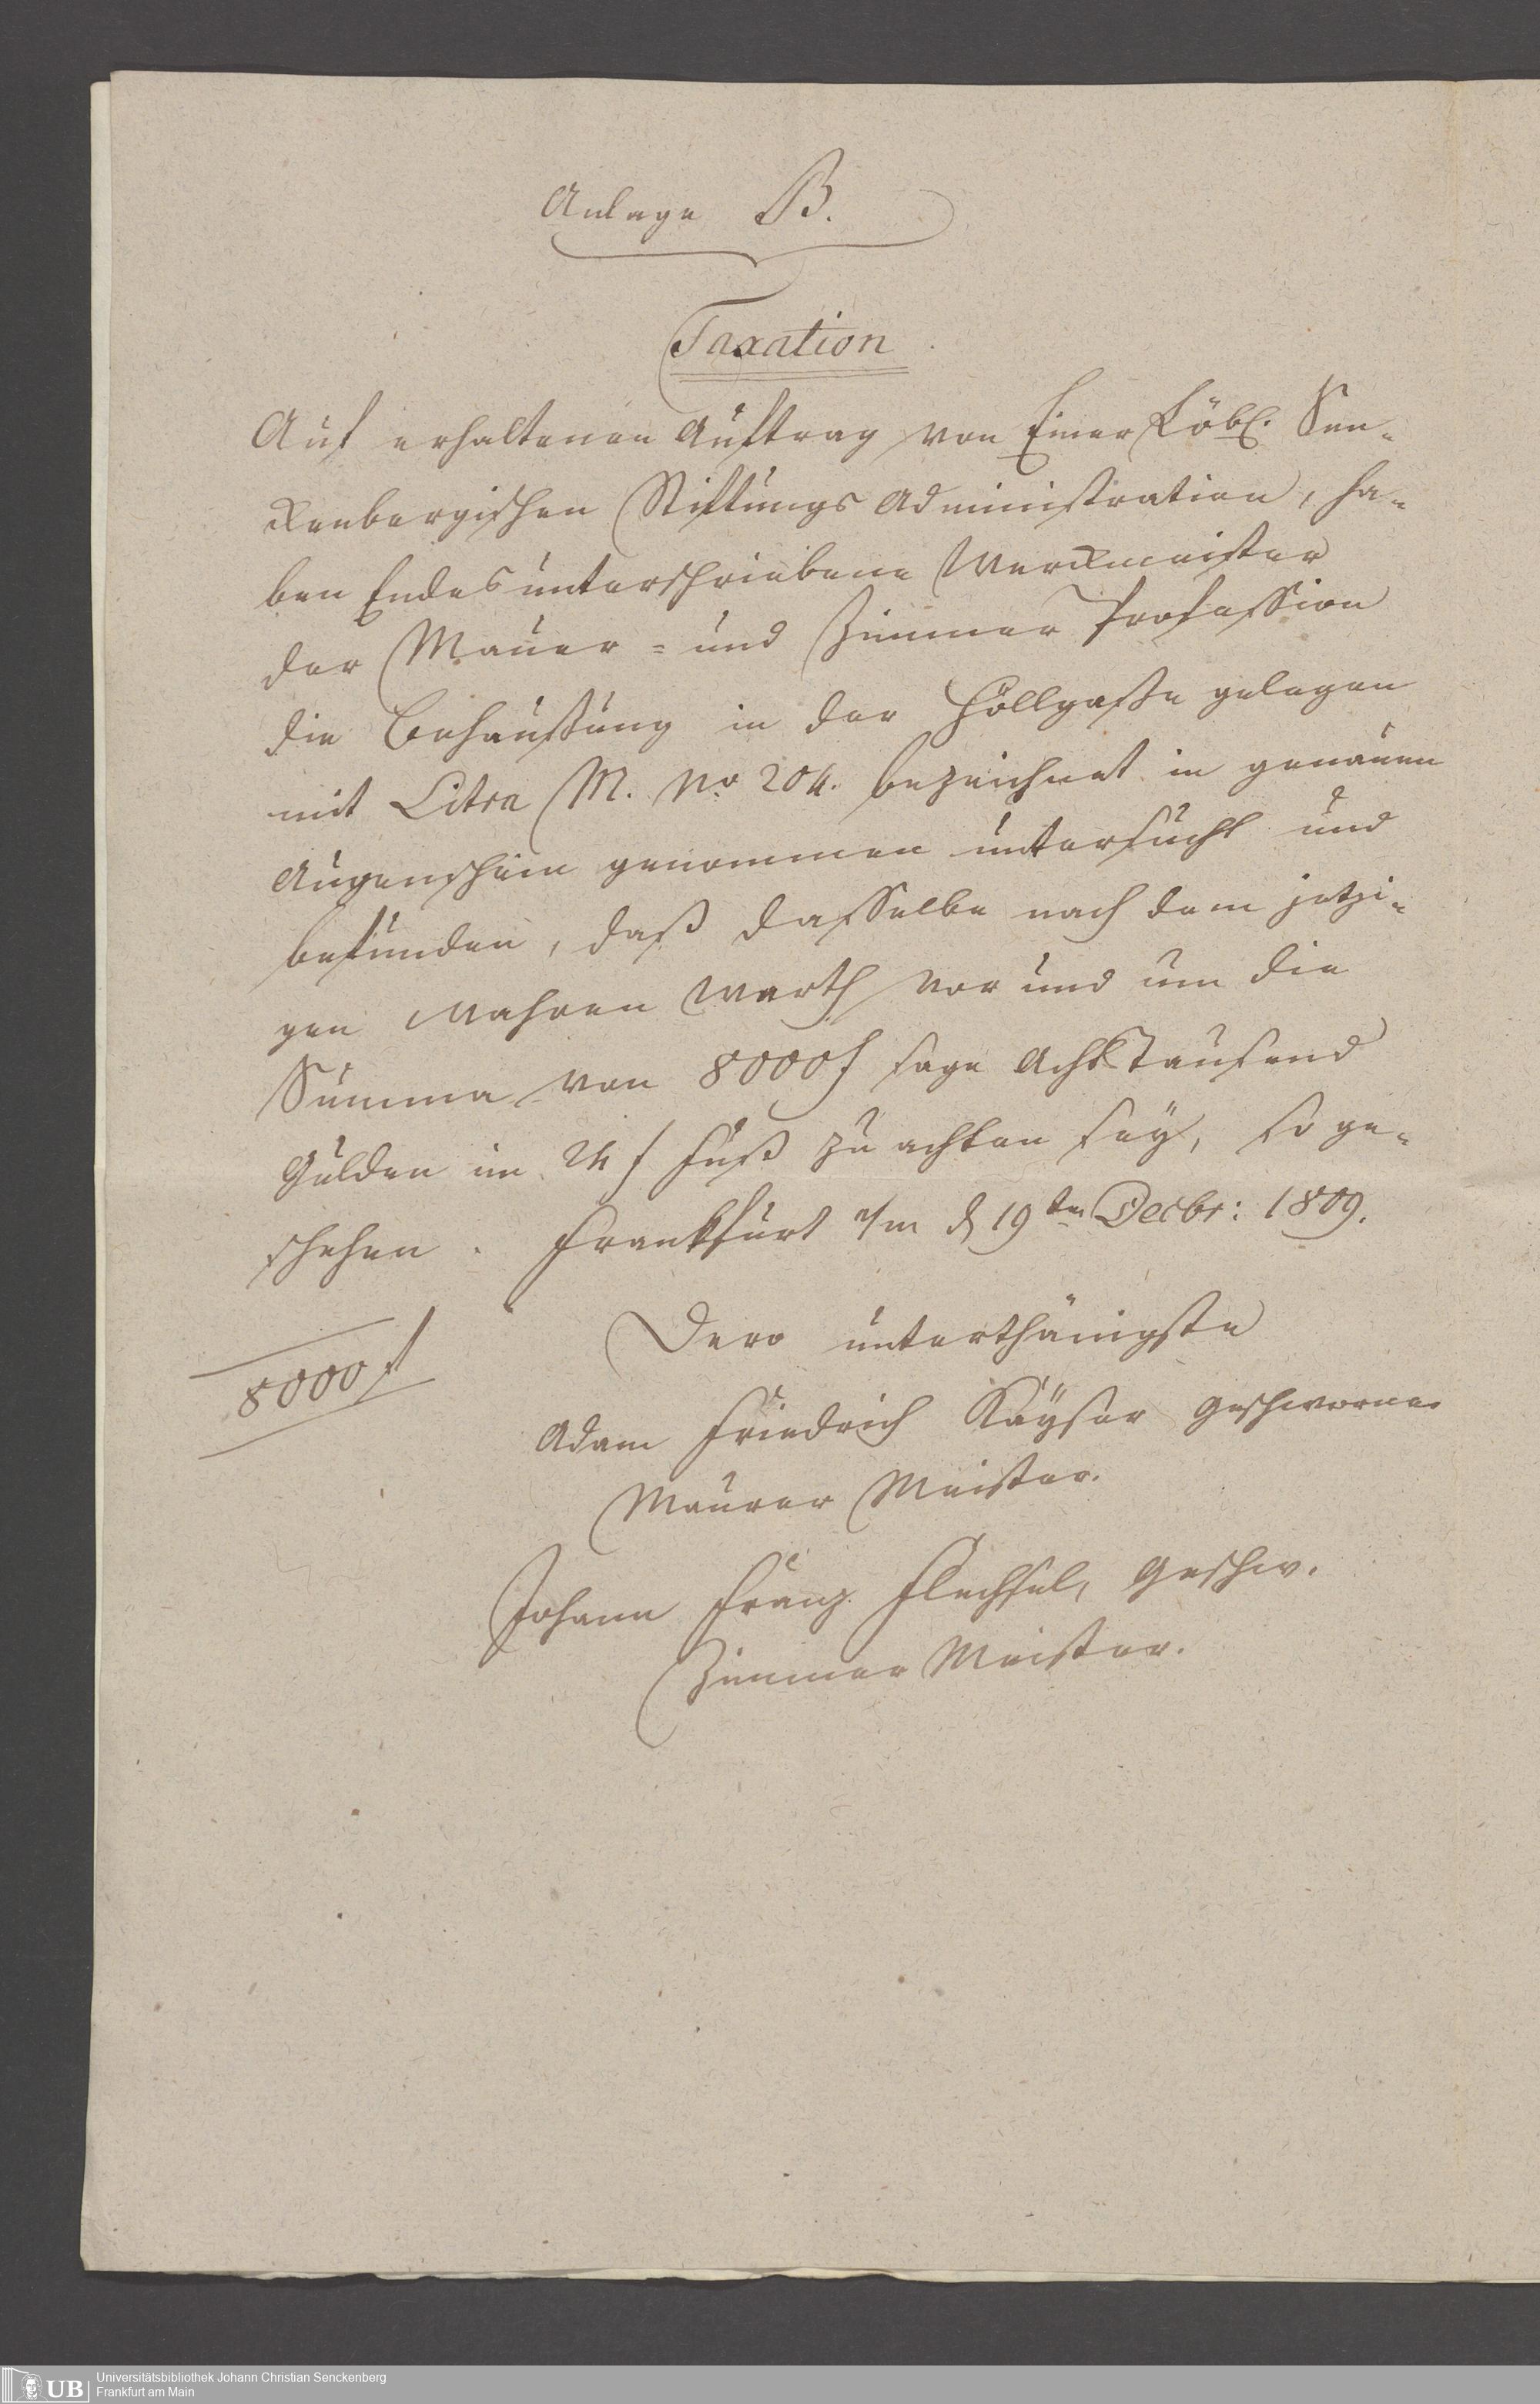 Anlage B.
Taxation.
Auf erhaltenen Auftrag von Einer Löbl. Sen-
kenbergischen Stiftungs Administration, ha-
ben Endes unterschriebene Werckmeister
der Mauer- und Zimmer Profession
die Behaußung in der Höllgaße gelegen
mit Litra M. No 204. bezeichnet in genauen
Augenschein genommen untersucht und
befunden, daß dasselbe nach dem jetzi-
gen wahren Werth vor und um die
Summa von 8000 f sage AchtTausend
Gulden im 24 f Fuß zu achten sey, so ge-
schehen. Franckfurt a/m d 19ten Decbr: 1809.
Dero unterthänigste
8000 f
Adam Friedrich Kayser geschworner
Maurer Meister.
Johann Franz Flechsel, Geschw.
Zimmer Meister.
UB Universitätsbibliothek Johann Christian Senckenberg
Frankfurt am Main